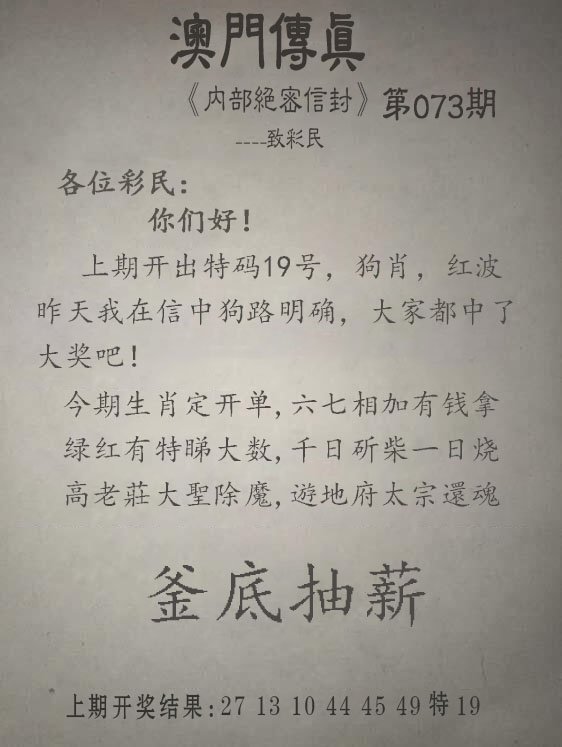 澳門傳眞
《内部絕密信封》第073期
----致彩民
各位彩民：
你们好！
上期开出特码19号，狗肖，红波
昨天我在信中狗路明确，大家都中了
大奖吧！
今期生肖定开单,六七相加有钱拿
绿红有特睇大数,千日斫柴一日烧
高老莊大聖除魔,遊地府太宗還魂
釜底抽薪
上期开奖结果:27 13 10 44 45 49 特 19